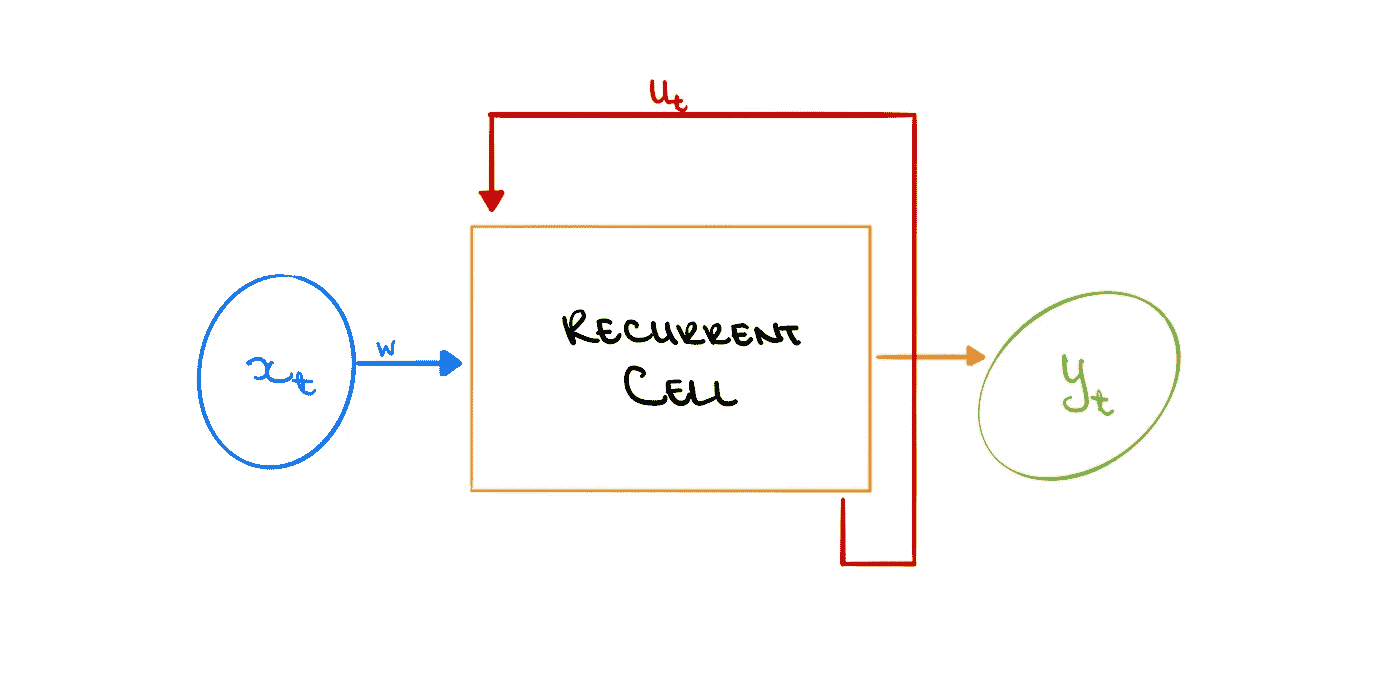 u_t
x_t
w
RECURRENT
CELL
y_t